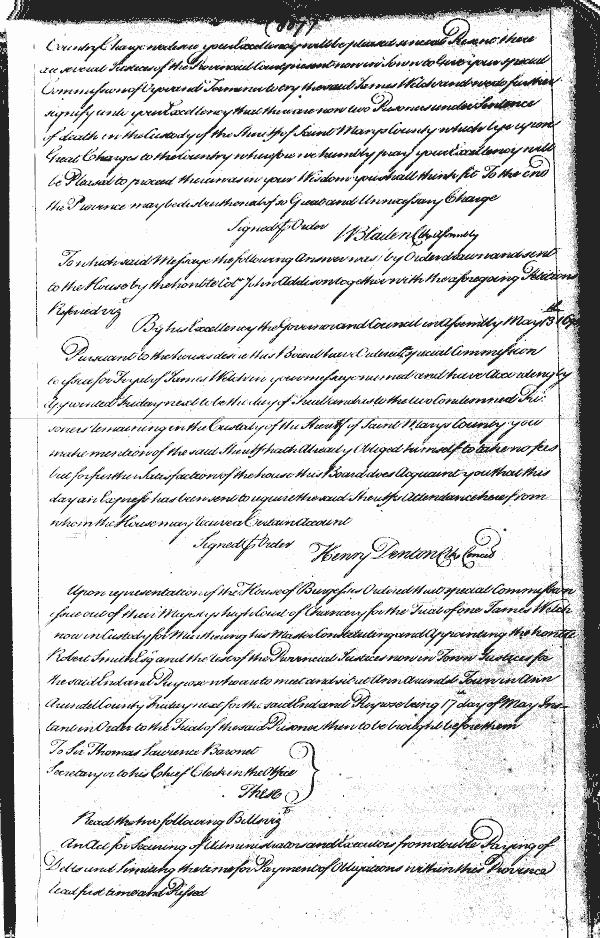 (1077
Country Charge unless your Excellency will be pleased since at Present there
are several Justices of the Provincial Court present now in Town to Give your special
Commission of Oyer and Terminer to try the said James Welch and we do further
signify unto your Excellency that there are now two Prisoners under Sentence
of death in the Custody of the Sheriff of Saint Marys County which lye upon
Great Charges to the Country wherefore we humbly pray your Excellency will
be Pleased to proceed therein as in your Wisdom you shall think fit To the end
the Province may be disburthened of so Great and Unnecessary Charge
Signed ꝑ Order
W Bladen Clk Assembly
To which said Message the following Answer was by Order drawn and sent
to the House by the honble Col. John Addison together with the aforegoing Petitions
Refered vizt
By his Excellency the Governor and Council in Assembly May 13th 169
Pursuant to the houses desire this Board have Ordered a special Commission
to issue for Tryal of James Welch in your message named and have Accordingly
Appointed Friday next to be the day of Trial and as to the two Condemned Pri:
soners remaining in the Custody of the Sheriff of Saint Marys County you
make mention of the said Sheriff hath Already Obliged himself to take no fees
but for further satisfaction of the house this Board does Acquaint you that this
day an Express has been sent to require the said Sheriffs Attendance here from
whom the House may have a Certain Account
Signed ꝑ Order
Henry Denton Clk Council
Upon representation of the House of Burgesses Ordered that a special Commission
issue out of their Majestys high Court of Chancery for the Trial of one James Welch
now in Custody for Murthering his Master Constituting and Appointing the honble
Robert Smith Esqr and the rest of the Provincial Justices now in Town Justices for
the said End and Purpose who are to meet and sit at Ann Arundel Town in Ann
Arundel County Friday next for the said End and Purpose being 17th day of May Ins-
tant in Order to the Trial of the said Prisoner then to be brought before them
To Sir Thomas Lawrence Baronet
Secretary or to his Chief Clerk in the Office
These
Read the two following Bills vizt
An Act for Securing of Administrators and Executors from double Paying of
Debts and limiting the time for Payment of Obligations within this Province
read first time and Passed